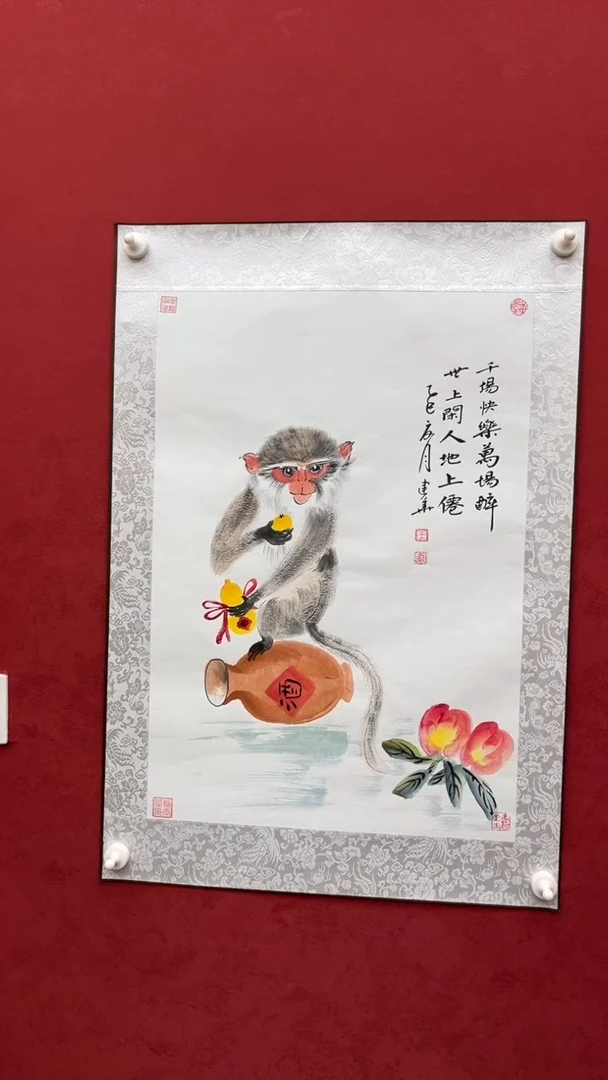 千場快樂萬場醉
世上閑人地上僊
乙巳亥月建華
酒